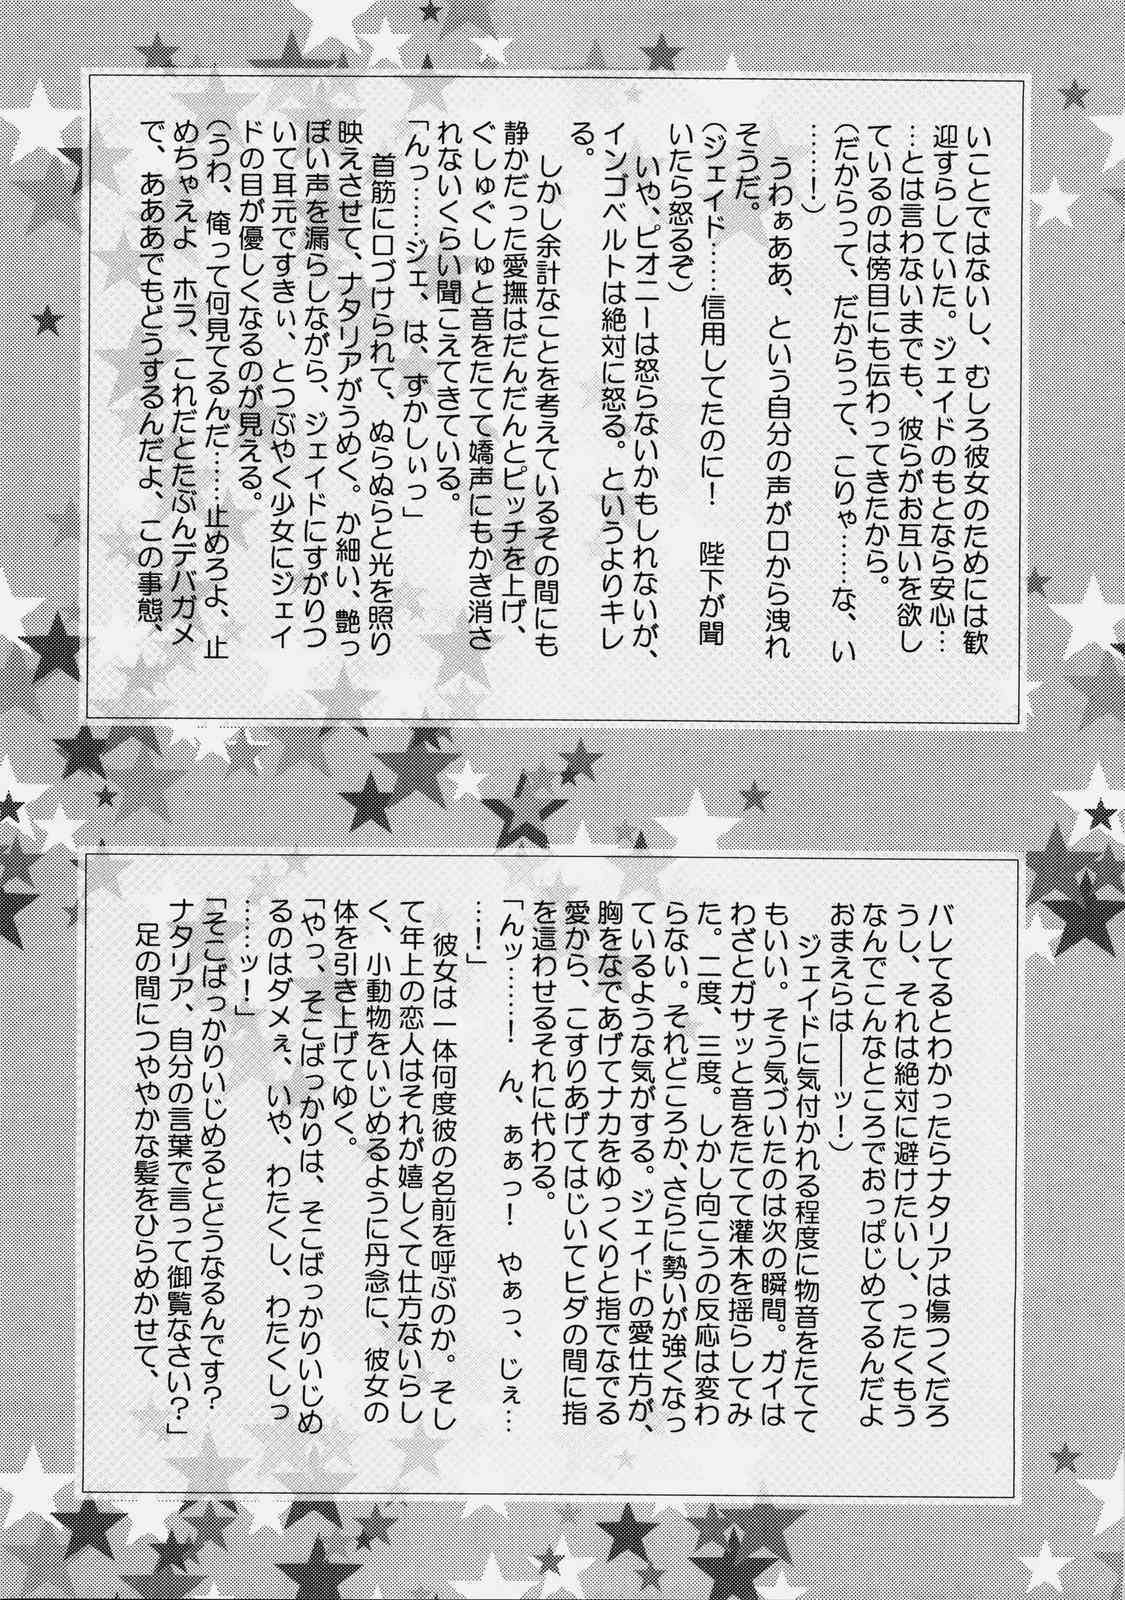 いことではないし、むしろ彼女のためには歓
迎すらしていた。ジェイドのもとなら安心…
…とは言わないまでも、彼らがお互いを欲し
ているのは傍目にも伝わってきたから。
(だからって、だからって、こりゃ……な、い
……!)
うわぁああ、という自分の声が口から洩れ
そうだ。
(ジェイド……信用してたのに! 陛下が聞
いたら怒るぞ)
いや、ピオニーは怒らないかもしれないが、
インゴベルトは絶対に怒る。というよりキレ
る。
しかし余計なことを考えているその間にも
静かだった愛撫はだんだんとピッチを上げ、
ぐしゅぐしゅと音をたてて嬌声にもかき消さ
れないくらい聞こえてきている。
「んっ……ジェ、は、ずかしぃっ」
首筋に口づけられて、ぬらぬらと光を照り
映えさせて、ナタリアがうめく。か細い、艶っ
ぽい声を漏らしながら、ジェイドにすがりつ
いて耳元ですきぃ、とつぶやく少女にジェイ
ドの目が優しくなるのが見える。
(うわ、俺って何見てるんだ……止めろよ、止
めちゃえよ ホラ、これだとたぶんデバガメ
で、あああでもどうするんだよ、この事態、
バレてるとわかったらナタリアは傷つくだろ
うし、それは絶対に避けたいし、ったくもう
なんでこんなところでおっぱじめてるんだよ
おまえらは――ッ!)
ジェイドに気付かれる程度に物音をたてて
もいい。そう気づいたのは次の瞬間。ガイは
わざとガサッと音をたてて灌木を揺らしてみ
た。二度、三度。しかし向こうの反応は変わ
らない。それどころか、さらに勢いが強くなっ
ているような気がする。ジェイドの愛仕方が、
胸をなであげてナカをゆっくりと指でなでる
愛から、こすりあげてはじいてヒダの間に指
を這わせるそれに代わる。
「んッ……! ん、ぁぁっ! やぁっ、じぇ…
…!」
彼女は一体何度彼の名前を呼ぶのか。そし
て年上の恋人はそれが嬉しくて仕方ないらし
く、小動物をいじめるように丹念に、彼女の
体を引き上げてゆく。
「やっ、そこばっかりは、そこばっかりいじめ
るのはダメぇ、いや、わたくし、わたくしっ
……ッ!」
「そこばっかりいじめるとどうなるんです?
ナタリア、自分の言葉で言って御覧なさい?」
足の間につややかな髪をひらめかせて、